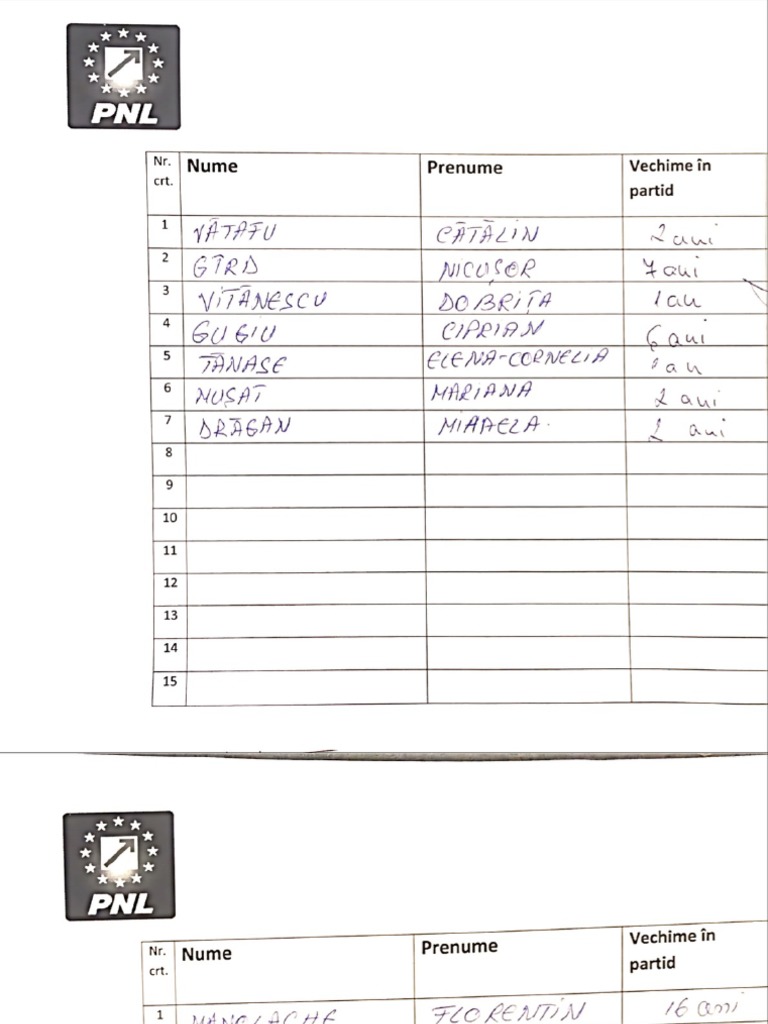 PNL
Nr. crt. Nume Prenume Vechime în partid
1 VĂTAFU CĂTĂLIN 2 ani
2 GÎRD NICUȘOR 7 ani
3 VITĂNESCU DOBRIȚA 1 an
4 GUGIU CIPRIAN 6 ani
5 TĂNASE ELENA-CORNELIA 1 an
6 MUȘAT MARIANA 2 ani
7 DRĂGAN MIHAELA. 2 ani
8
9
10
11
12
13
14
15
PNL
Nr. crt. Nume Prenume Vechime în partid
1 MANOLACHE FLORENTIN 16 ani